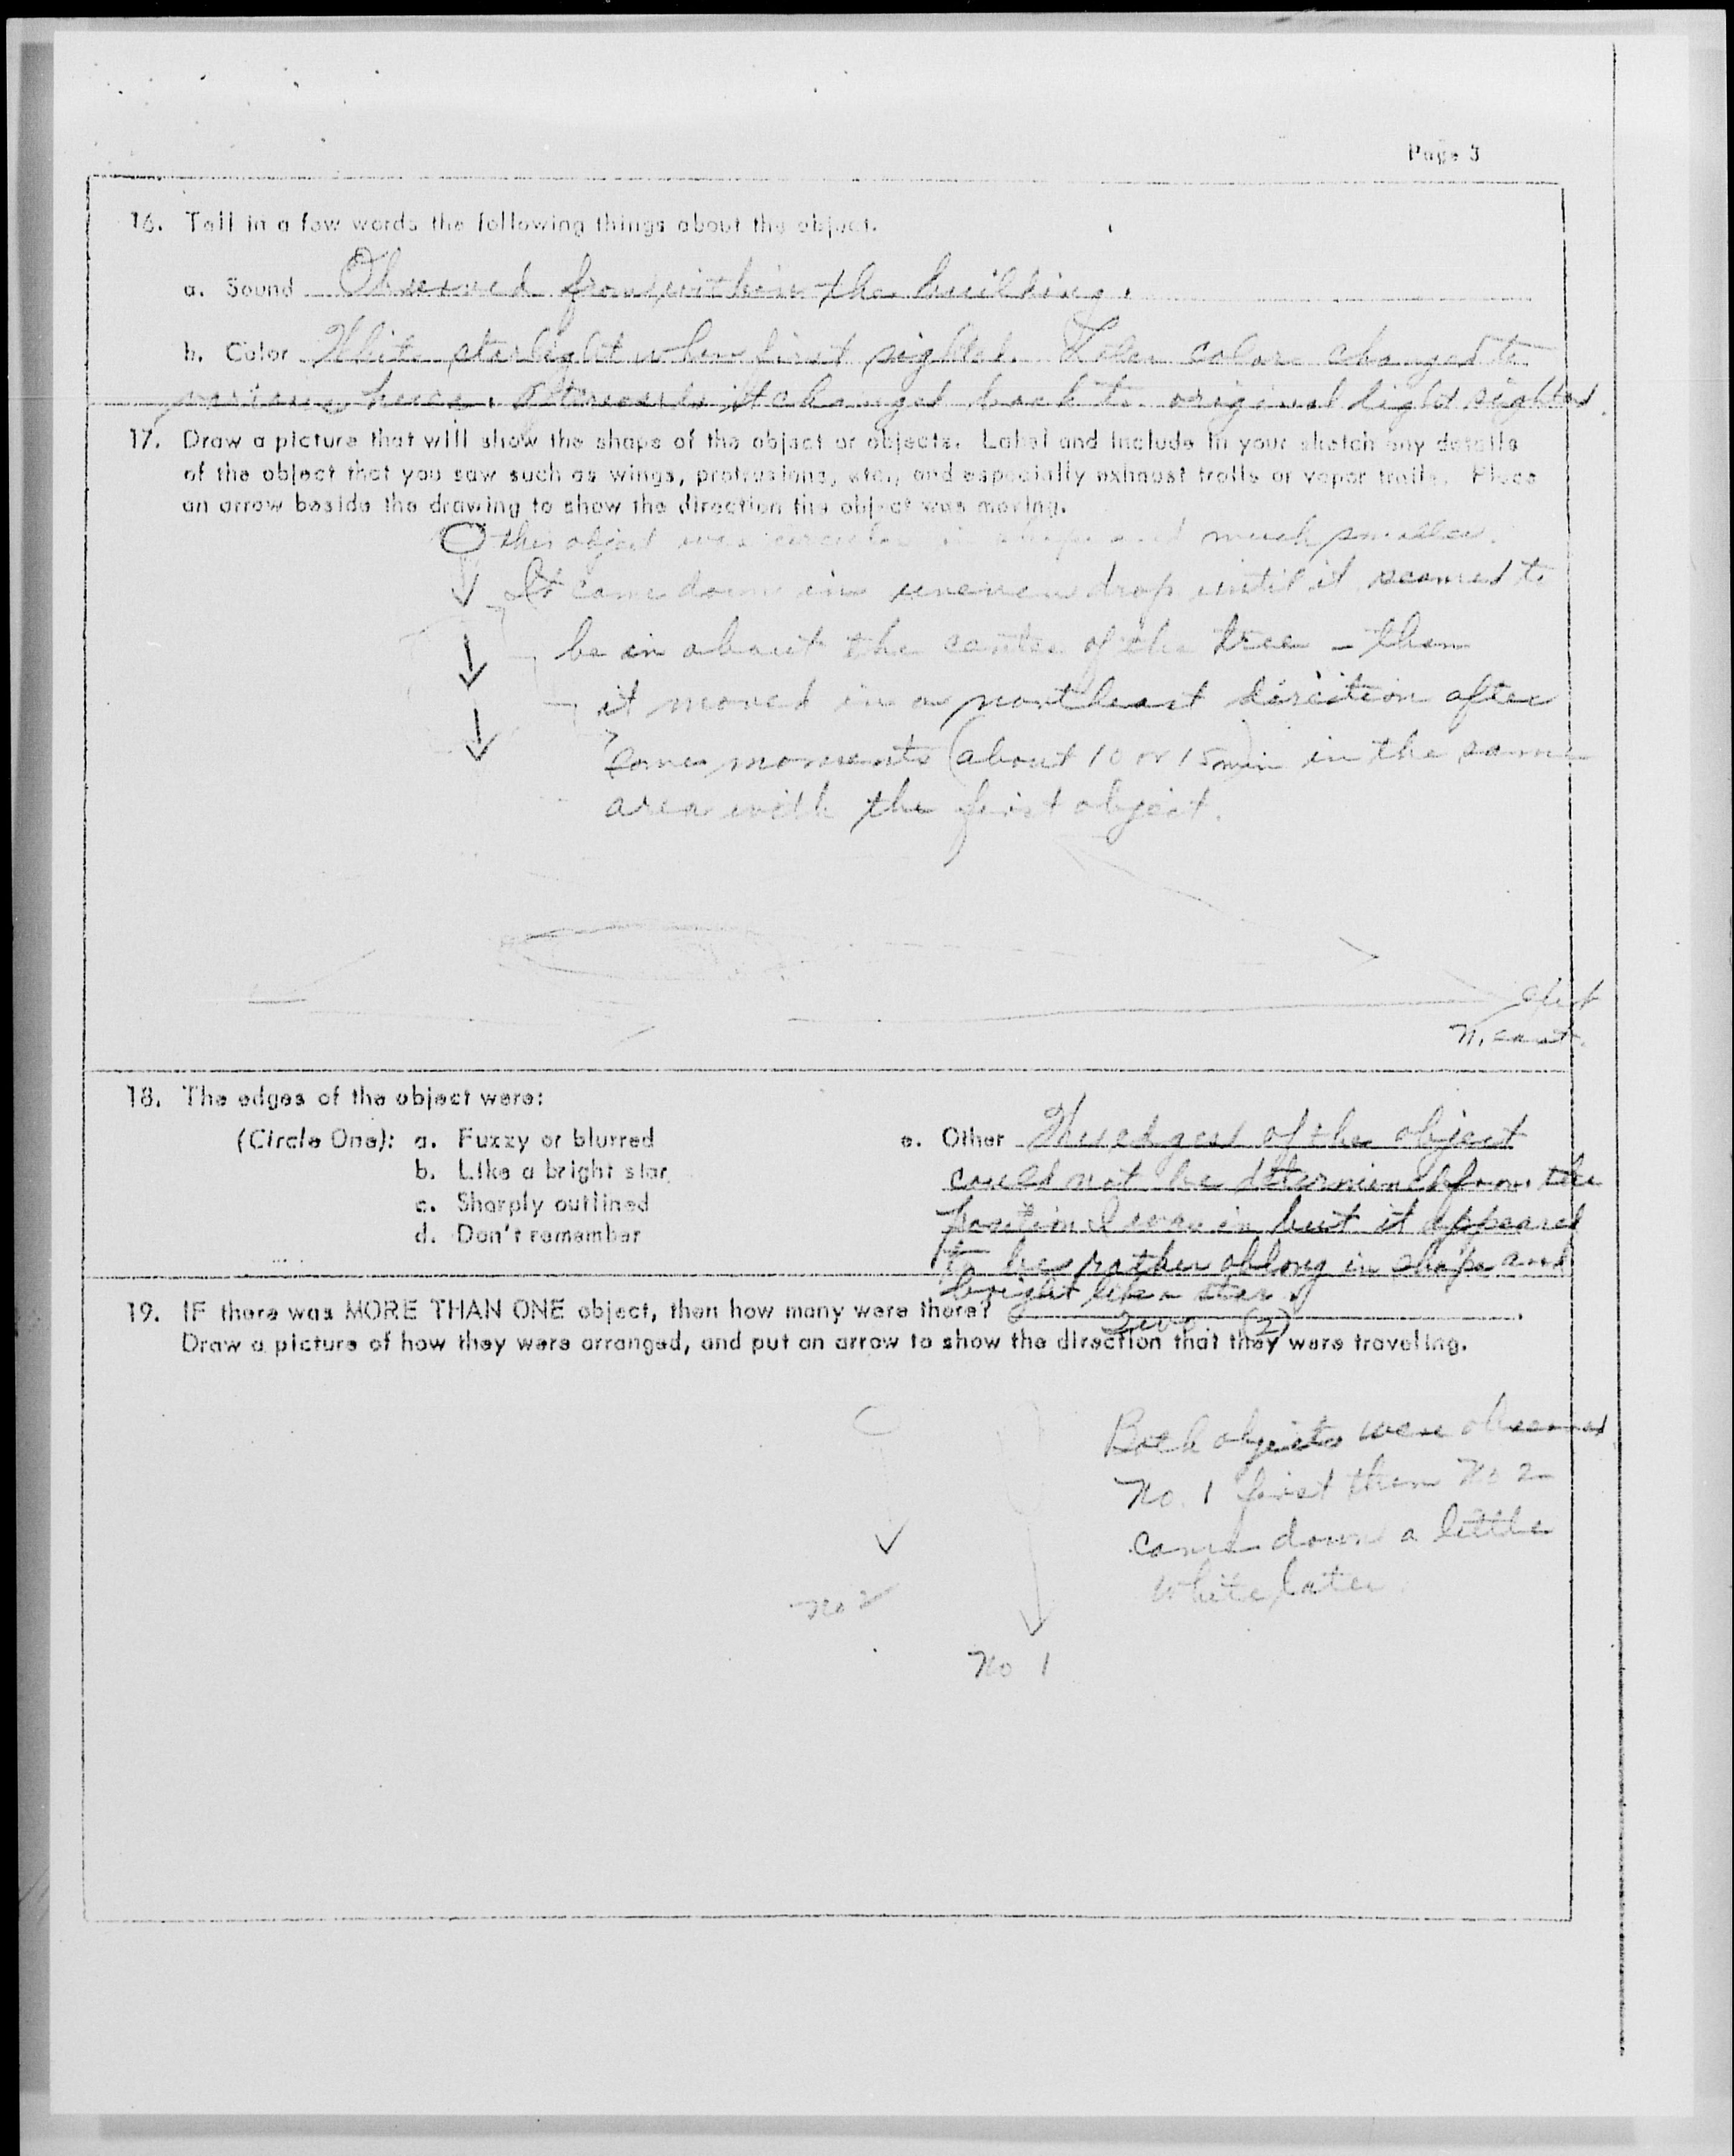 Page 3
16. Tell in a few words the following things about the object.
a. Sound Observed from within the building.
b. Color White starlight when first sighted. Later color changed to
various hues. Afterwards it changed back to original light sighted.
17. Draw a picture that will show the shape of the object or objects. Label and include in your sketch any details
of the object that you saw such as wings, protrusions, etc., and especially exhaust trails or vapor trails. Place
an arrow beside the drawing to show the direction the object was moving.
this object was circular in shape and much smaller.
It came down in uneven drop until it seemed to
be in about the center of the tree - then
it moved in a northeast direction after
some moments (about 10 or 15 min) in the same
area with the first object.
N. east.
18. The edges of the object were:
(Circle One): a. Fuzzy or blurred
b. Like a bright star
c. Sharply outlined
d. Don't remember
e. Other The edges of the object
could not be determined from the
position I was in but it appeared
to be rather oblong in shape and
bright like a star.
19. IF there was MORE THAN ONE object, then how many were there? Two (2).
Draw a picture of how they were arranged, and put an arrow to show the direction that they were traveling.
Both objects were observed
No. 1 first then No 2
came down a little
while later.
No 2
No 1